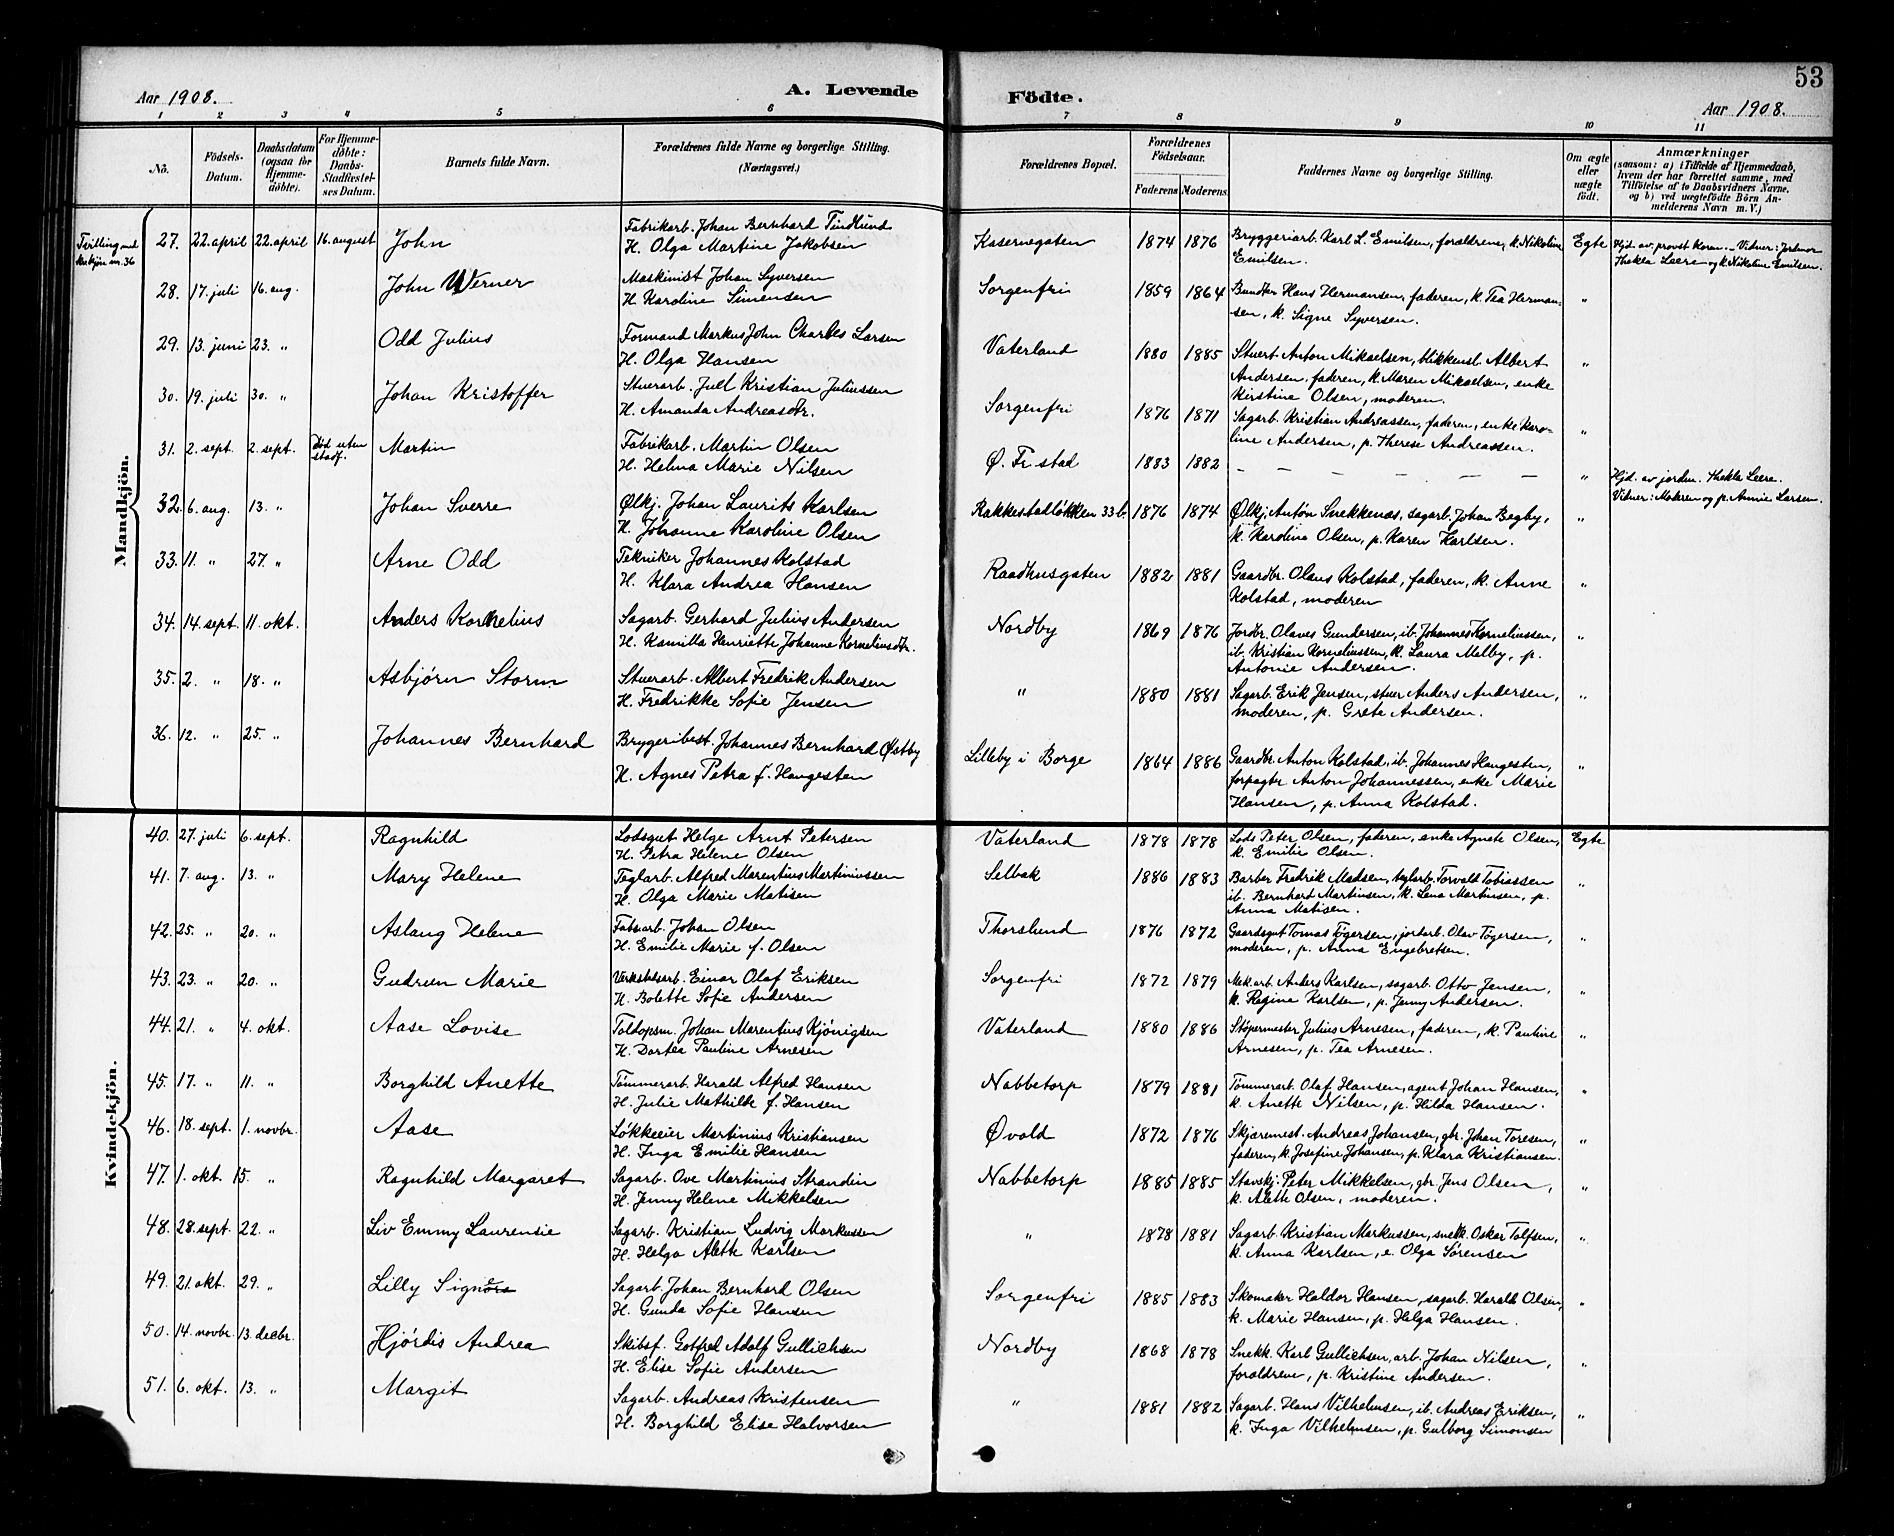 53
Aar 1908.
A. Levende
Födte.
Aar 1908.
1 2 3 4 5 6 7 8 9 10 11
No.
Födsels-Datum.
Daabsdatum (ogsaa for Hjemmedöbte).
For Hjemmedöbte: Daabs-Stadfæstelses Datum.
Barnets fulde Navn.
Forældrenes fulde Navne og borgerlige Stilling. (Næringsvei.)
Forældrenes Bopæl.
Forældrenes Födselsaar.
Faderens Moderens
Faddernes Navne og borgerlige Stilling.
Om ægte eller uægte födt.
Anmærkninger
(saasom: a) i Tilfælde af Hjemmedaab,
hvem der har forrettet samme, med
Tilföielse af to Daabsvidners Navne,
og b) ved uægtefödte Börn Anmelderens Navn m. V.)
Mandkjön.
Tvilling med kvkjön nr. 36
27. 22. april 22. april 16. august John Fabrikarb. Johan Bernhard Tindlund Kasernegaten 1874 1876 Bryggeriarb. Karl L. Emilsen, forældrene, k. Nikoline Egte Hjd. av provst Koren. – Vidner: Jordmor
H. Olga Martine Jakobsen Emilsen. Thekla Leere og k. Nikoline Emilsen.
28. 17. juli 16. aug. John Werner Maskinist Johan Syversen Sorgenfri 1859 1864 Hans Hermansen, faderen, k. Tea Herman- "
H. Karoline Simensen sen, k. Signe Syversen.
29. 13. juni 23. " Odd Julius Formand Markus John Charles Larsen Vaterland 1880 1885 Stuert Anton Mikaelsen, blikkensl. Albert "
H. Olga Hansen Andersen, faderen, k. Maren Mikaelsen, enke
Kirstine Olsen, moderen.
30. 19. juli 30. " Johan Kristoffer Stuerarb. Juel Kristian Juliussen Sorgenfri 1876 1871 Sagarb. Kristian Andreassen, faderen, enke Karo- "
H. Amanda Andreasdtr. line Andersen, p. Therese Andreassen.
31. 2. sept. 2. sept. Död uten stadf. Martin Fabrikarb. Martin Olsen Ø. Fr.stad 1883 1882 – – – – – – " Hjd. av jordm. Thekla Leere.
H. Helma Marie Nilsen Vidner: Moderen og p. Annie Larsen.
32. 6. aug. 13. " Johan Sverre Ølkj. Johan Laurits Karlsen Rakkestadløkken 33b. 1876 1874 Ølkj. Anton Snekkenæs, sagarb. Johan Begby, "
H. Johanne Karoline Olsen k. Karoline Olsen, p. Karen Karlsen.
33. 11. " 27. " Arne Odd Tekniker Johannes Kolstad Raadhusgaten 1882 1881 Gaardbr. Olaus Kolstad, faderen, k. Anne "
H. Klara Andrea Hansen Kolstad, moderen
34. 14. sept. 11. okt. Anders Kornelius Sagarb. Gerhard Julius Andersen Nordby 1869 1876 Jordbr. Olaves Gundersen, ib. Johannes Korneliussen, "
H. Kamilla Henriette Johanne Korneliusdtr. ib. Kristian Korneliussen, k. Laura Melby, p.
Antonie Andersen.
35. 2. " 18. " Asbjørn Storm Stuerarb. Albert Fredrik Andersen " 1880 1881 Sagarb. Erik Jensen, stuer Anders Andersen, "
H. Fredrikke Sofie Jensen moderen, p. Grete Andersen.
36. 12. " 25. " Johannes Bernhard Brygeribest. Johannes Bernhard Østby Lilleby i Borge 1864 1886 Gaardbr. Anton Kolstad, ib. Johannes Haugesten, "
H. Agnes Petra f. Haugesten forpagter Anton Johannessen, enke Marie
Hansen, p. Anna Kolstad.
Kvindekjön.
40. 27. juli 6. sept. Ragnhild Lodsgut Helge Arnt Petersen Vaterland 1878 1878 Lods Peter Olsen, faderen, enke Agnete Olsen, Egte
H. Petra Helene Olsen k. Emilie Olsen.
41. 7. aug. 13. " Mary Helene Teglarb. Alfred Marentius Martiniussen Selbak 1886 1883 Barber Fredrik Madsen, teglarb. Torvald Tobiassen "
H. Olga Marie Matisen ib. Bernhard Martinsen, k. Lena Martinsen, p.
Anna Matisen.
42. 25. " 20. " Aslaug Helene Fabrarb. Johan Olsen Thorslund 1876 1872 Gaardsgut Tomas Tøgersen, jordarb. Olav Tøgersen, "
H. Emilie Marie f. Olsen moderen, p. Anna Engebretsen.
43. 23. " 20. " Gudrun Marie Verkstedsarb. Einar Olaf Eriksen Sorgenfri 1872 1879 Mek.arb. Anders Karlsen, sagarb. Otto Jensen, "
H. Bolette Sofie Andersen k. Regine Karlsen, p. Jenny Andersen.
44. 21. " 4. okt. Aase Lovise Toldopsm. Johan Marentius Kjønigsen Vaterland 1880 1886 Støpermester Julius Arnesen, faderen, k. Pauline "
H. Dortea Pauline Arnesen Arnesen, p. Tea Arnesen.
45. 17. " 11. " Borghild Anette Tømmerarb. Harald Alfred Hansen Nabbetorp 1879 1881 Tømmerarb. Olaf Hansen, agent Johan Hansen, "
H. Julie Mathilde f. Hansen k. Anette Nilsen, p. Hilda Hansen.
46. 18. sept. 1. novbr. Aase Løkkeeier Martinius Kristiansen Øvald 1872 1876 Skjæremest. Andreas Johansen, gbr. Johan Toresen, "
H. Inga Emilie Hansen faderen, k. Josefine Johansen, p. Klara Kristiansen.
47. 1. okt. 15. " Ragnhild Margaret Sagarb. Ove Martinius Strandin Nabbetorp 1885 1885 Stavskj. Peter Mikkelsen, gbr. Jens Olsen, "
H. Jenny Helene Mikkelsen k. Alette Olsen, moderen.
48. 28. sept. 22. " Liv Emmy Laurensie Sagarb. Kristian Ludvig Markussen " 1878 1881 Sagarb. Kristian Markussen, snekk. Oskar Tolfsen, "
H. Helga Alette Karlsen k. Anna Karlsen, e. Olga Sørensen
49. 21. okt. 29. " Lilly Sagarb. Johan Bernhard Olsen Sorgenfri 1885 1883 Skomaker Haldor Hansen, sagarb. Harald Olsen, "
H. Gunda Sofie Hansen k. Marie Hansen, p. Helga Hansen.
50. 14. novbr. 13. decbr. Hjørdis Andrea Skibsf. Gotfred Adolf Gullichsen Nordby 1868 1878 Snekk. Karl Gullichsen, arb. Johan Nilsen, "
H. Elise Sofie Andersen forældrene, p. Kristine Andersen.
51. 6. okt. 13. " Margit Sagarb. Andreas Kristensen " 1881 1882 Sagarb. Hans Vilhelmsen, ib. Andreas Eriksen, "
H. Borghild Elise Halvorsen k. Inga Vilhelmsen, p. Gulborg Simonsen